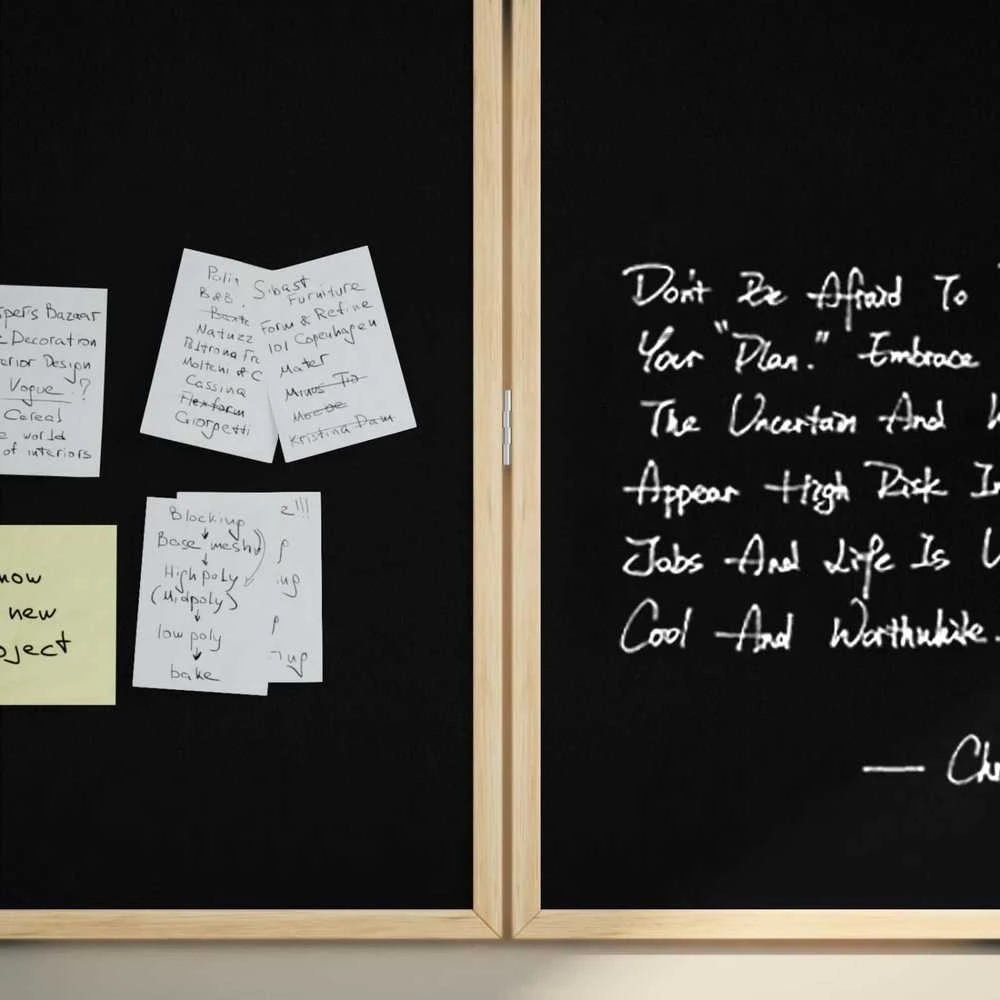 pers Bazaar
Decoration
erior Design
Vogue ?
Cereal
e world
of interiors
now
new
oject
B&B
Natuzz
Poltrona Fr
Molteni & C
Cassina
Flexform
Giorgetti
Sibast
Furniture
Form & Refine
101 Copenhagen
Mater
Kristina Dam
Blocking
Base mesh
High poly
(Midpoly)
low poly
bake
2!!!
p
ug
p
ug
Don't Be Afraid To
Your "Plan." Embrace
The Uncertain And
Appear High Risk In
Jobs And Life Is
Cool And Worthwhile.
— Chr